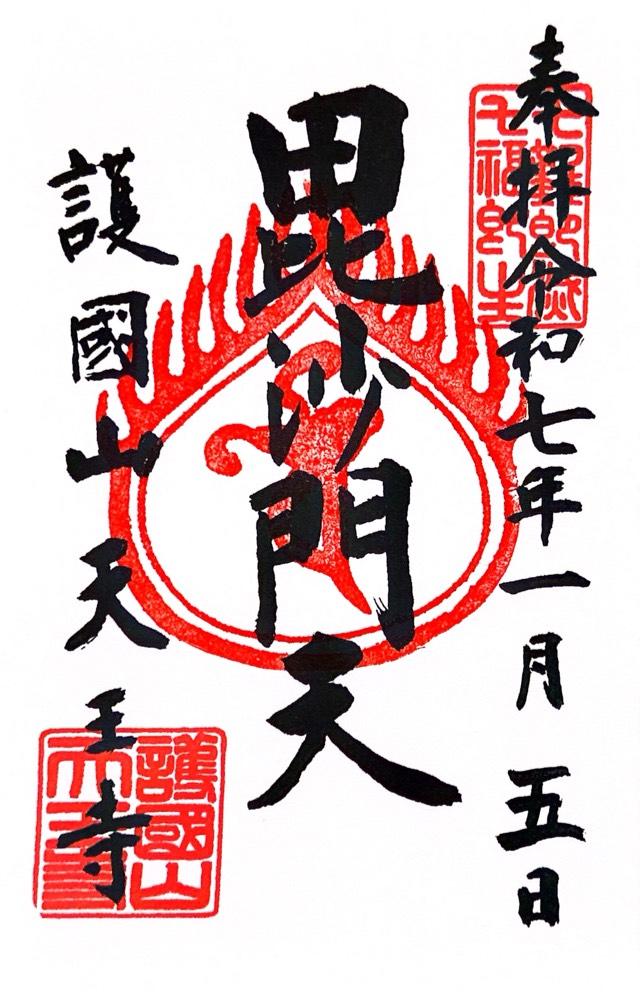 奉拝令和七年一月五日
毘沙門天
護國山天王寺
護國山
天王寺